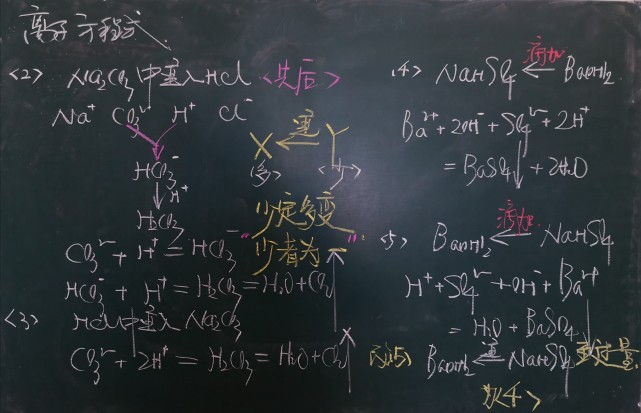 离子方程式
<2> Na₂CO₃中滴入HCl <先后>
Na⁺ CO₃²⁻ H⁺ Cl⁻
HCO₃⁻
↓H⁺
H₂CO₃
CO₃²⁻ + H⁺ = HCO₃⁻
HCO₃⁻ + H⁺ = H₂CO₃ = H₂O + CO₂↑
<3> HCl中滴入 Na₂CO₃
CO₃²⁻ + 2H⁺ = H₂CO₃ = H₂O + CO₂↑
X ←滴 Y
<多> <少>
少定多变
"少者为一":
<4> NaHSO₄ ←滴加 Ba(OH)₂
Ba²⁺ + 2OH⁻ + SO₄²⁻ + 2H⁺
= BaSO₄↓ + 2H₂O
<5> Ba(OH)₂ ←滴加 NaHSO₄
H⁺ + SO₄²⁻ + OH⁻ + Ba²⁺
= H₂O + BaSO₄↓
Ba(OH)₂ ←滴 NaHSO₄ 至过量